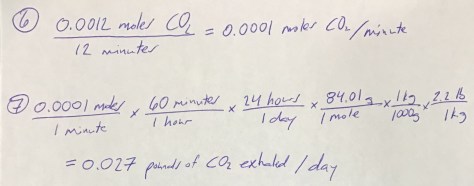 ⑥ 0.0012 moles CO₂ / 12 minutes = 0.0001 moles CO₂/minute
⑦ 0.0001 moles / 1 minute × 60 minutes / 1 hour × 24 hours / 1 day × 84.01g / 1 mole × 1kg / 1000g × 2.2 lb / 1kg
= 0.027 pounds of CO₂ exhaled / day